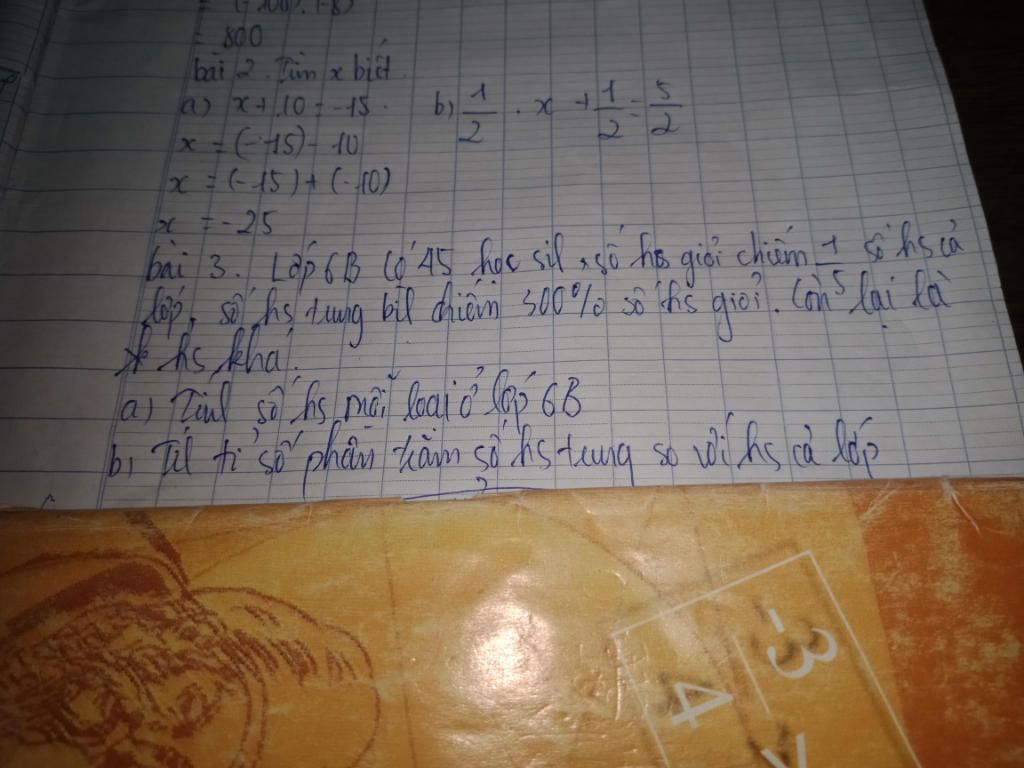 = (-100). (-8)
= 800
bài 2. Tìm x biết.
a) x + 10 = -15. b) 1/2 . x + 1/2 = 5/2
x = (-15) - 10
x = (-15) + (-10)
x = -25
bài 3. Lớp 6B có 45 học sil, số hs giỏi chiếm 1/5 số hs cả
lớp, số hs tung bil chiếm 300% số hs giỏi. Còn lại là
hs khá.
a) Tính số hs mỗi loại ở lớp 6B
b) Til tỉ số phần trăm số hs tung so với hs cả lớp
-3
4